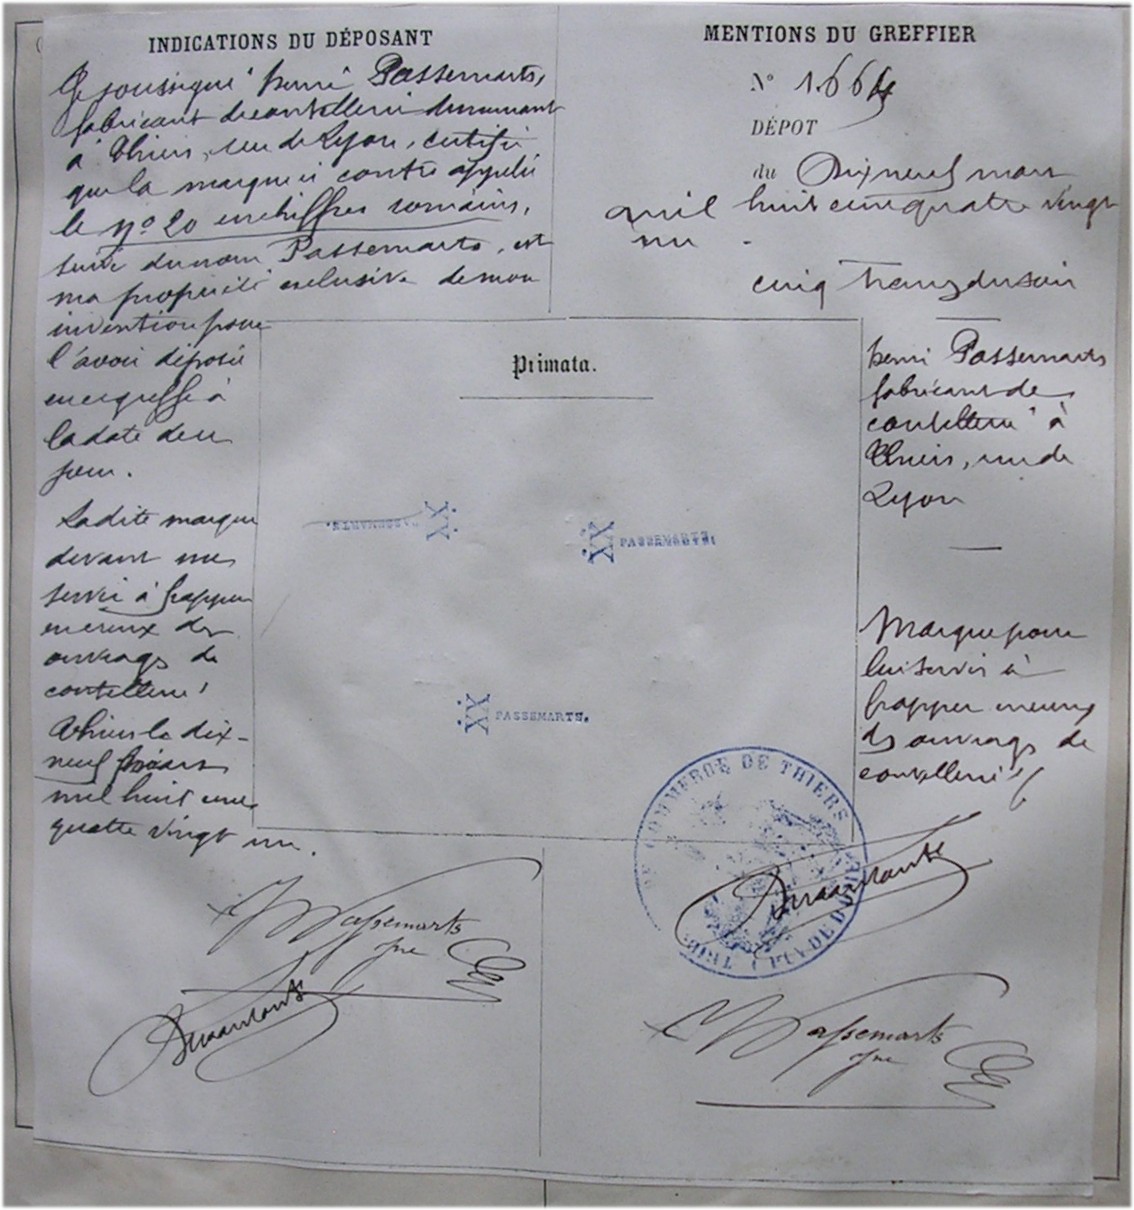 INDICATIONS DU DÉPOSANT
Je soussigné henri Passemarts,
fabricant de coutellerie demeurant
à Thiers, rue de Lyon, certifie
que la marque ci contre appelée
le no 20 en chiffres romains,
suivi du nom Passemarts, est
ma propriété exclusive de mon
invention pour
l'avoir déposée
en ce greffe à
la date de ce
jour.
La dite marque
devant me
servir à frapper
en creux des
ouvrages de
coutellerie
Thiers le dix-
neuf mars
mil huit cent
quatre vingt un.
Passemarts
MENTIONS DU GREFFIER
N° 1.664
DÉPOT
du Dix neuf mars
mil huit cent quatre vingt
un.
cinq heures du soir
henri Passemarts
fabricant de
coutellerie à
Thiers, rue de
Lyon
Marque pour
lui servir à
frapper en creux
des ouvrages de
coutellerie
Passemarts
Primata.
XX PASSEMARTS.
XX PASSEMARTS.
XX PASSEMARTS.
DE COMMERCE DE THIERS
TRIBUNAL (PUY DE DOME)